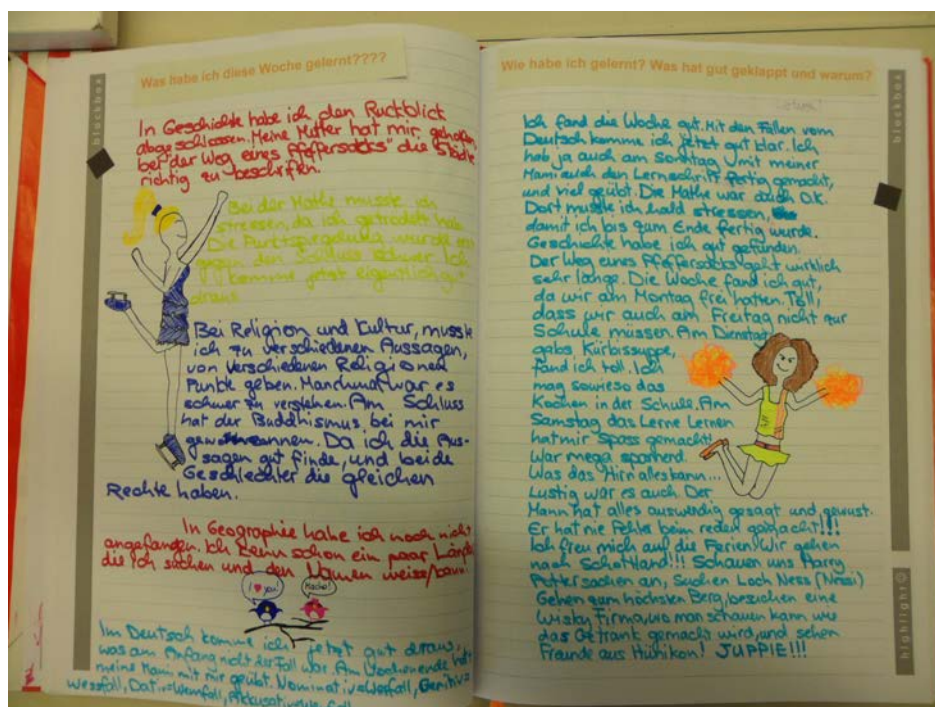 Was habe ich diese Woche gelernt????
blackbox
In Geschichte habe ich den Rückblick
abgeschlossen. Meine Mutter hat mir geholfen,
bei "der Weg eines Pfeffersacks" die Städte
richtig zu beschriften.
Bei der Mathe musste ich
stressen, da ich getrödelt hab.
Die Punktspiegelung wurde
gegen den Schluss schwer. Ich
komme jetzt eigentlich gut
draus.
Bei Religion und Kultur, musste
ich zu verschiedenen Aussagen,
von verschiedenen Religionen
Punkte geben. Manchmal war es
schwer zu verstehen. Am Schluss
hat der Buddhismus bei mir
gewonnen. Da ich die Aus-
sagen gut finde, und beide
Geschlechter die gleichen
Rechte haben.
In Geographie habe ich noch nicht
angefangen. Ich kenn schon ein paar Länder
die ich suchen und den Namen weiss/kann.
I ♥ you!
Macho!
Im Deutsch komme ich jetzt gut draus,
was am Anfang nicht der Fall war. Am Wochenende hat
meine Mami mit mir geübt. Nominativ=Werfall, Genitiv=
wessfall, Dativ=Wemfall, Akkusativ
Wie habe ich gelernt? Was hat gut geklappt und warum?
blackbox
Ich fand die Woche gut. Mit den Fällen vom
Deutsch komme ich jetzt gut klar. Ich
hab ja auch am Sonntag mit meiner
Mami auch den Lernschritt fertig gemacht,
und viel geübt. Die Mathe war auch O.K.
Dort musste ich halt stressen,
damit ich bis zum Ende fertig wurde.
Geschichte habe ich gut gefunden.
Der Weg eines Pfeffersacks geht wirklich
sehr lange. Die Woche fand ich gut,
da wir am Montag frei hatten. Toll,
dass wir auch am Freitag nicht zur
Schule müssen. Am Dienstag
gabs Kürbissuppe,
fand ich toll. Ich
mag sowieso das
Kochen in der Schule. Am
Samstag das Lerne Lernen
hat mir Spass gemacht!
War mega spannend.
Was das Hirn alles kann...
Lustig war es auch. Der
Mann hat alles auswendig gesagt und gewusst.
Er hat nie Fehler beim reden gemacht!!!
Ich freu mich auf die Ferien! Wir gehen
nach Schottland!!! Schauen uns Harry
Potter sachen an, Suchen Loch Ness (Nessi)
Gehen zum höchsten Berg, besuchen eine
Wisky Firma, wo man schauen kann wie
das Getränk gemacht wird, und sehen
Freunde aus Hütikon! JUPPIE!!!
highlight